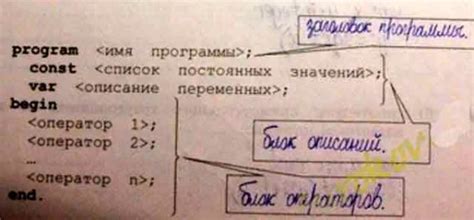 заголовок программы.
program <имя программы>;
const <список постоянных значений>;
var <описание переменных>;
begin
<оператор 1>;
<оператор 2>;
блок описаний.
…
<оператор n>;
блок операторов.
end.